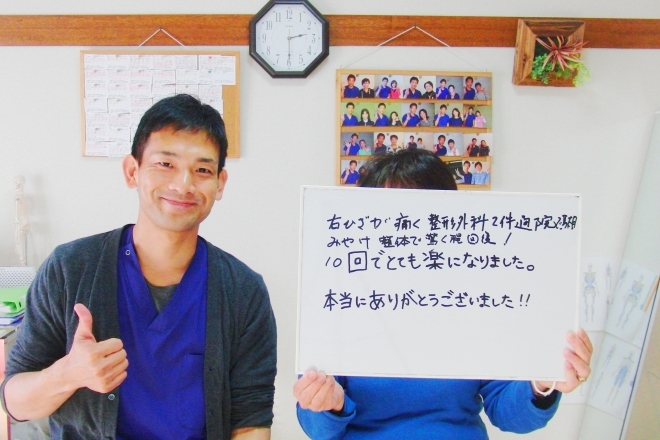 右ひざが痛く整形外科2件通院
みやけ整体で驚く程回復!
10回でとても楽になりました。
本当にありがとうございました!!